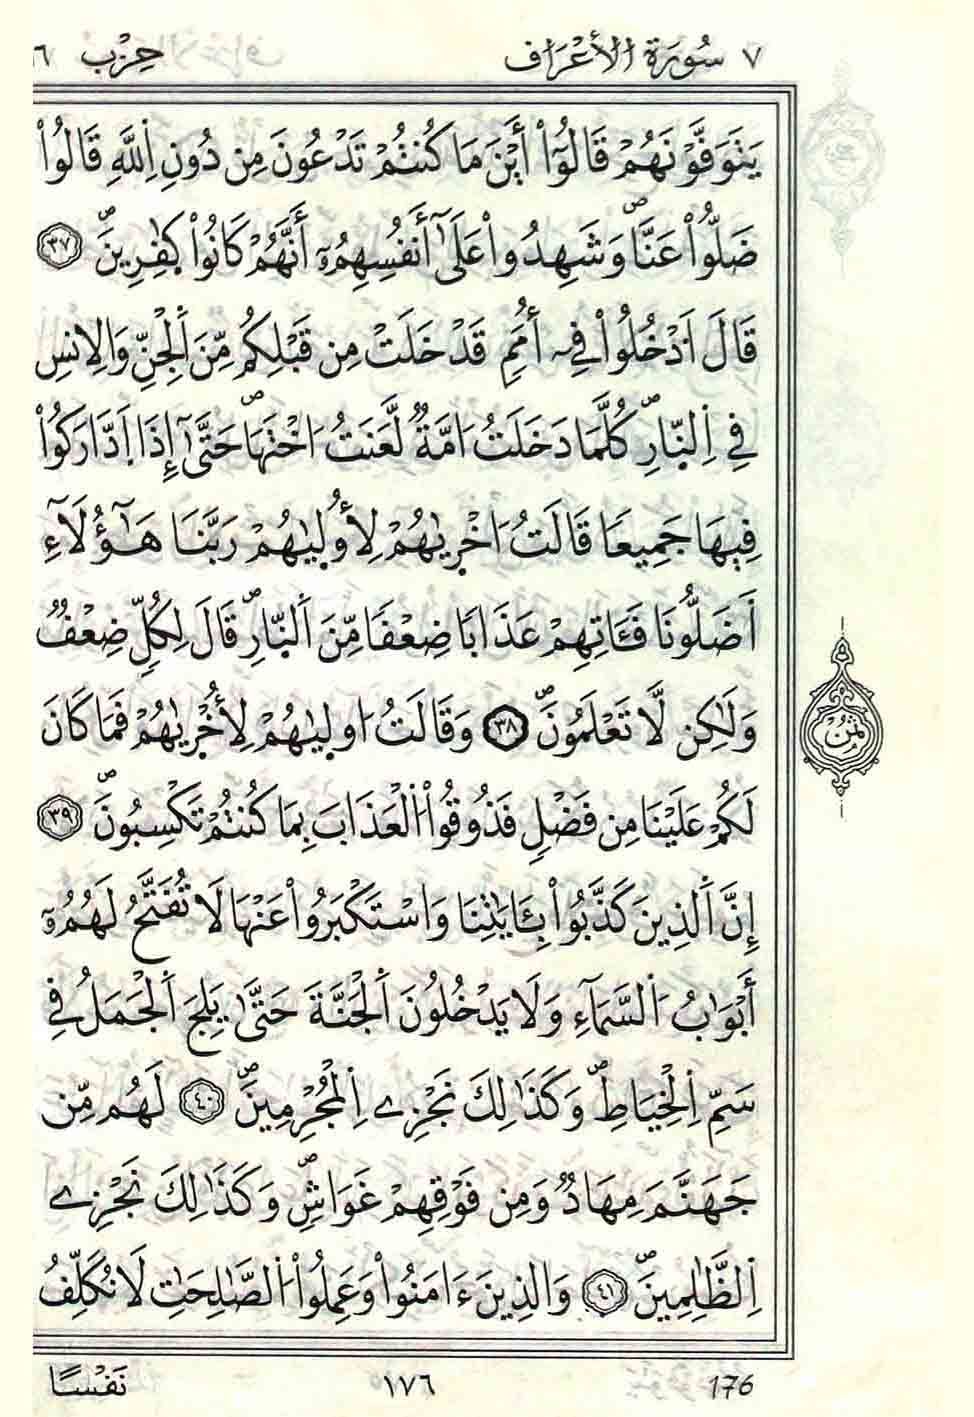 ٧ سُورَةُ الأَعْرَافِ حِزْب ١٦
يَتَوَفَّوْنَهُمْ قَالُوٓاْ أَيْنَ مَا كُنتُمْ تَدْعُونَ مِن دُونِ اِ۬للَّهِ قَالُواْ
ضَلُّواْ عَنَّاۖ وَشَهِدُواْ عَلَىٰٓ أَنفُسِهِمُۥٓ أَنَّهُمْ كَانُواْ كٰ۪فِرِينَۖ ٣٧
قَالَ اَ۟دْخُلُواْ فِےٓ أُمَمٖ قَدْ خَلَتْ مِن قَبْلِكُم مِّنَ اَ۬لْجِنِّ وَالِانسِ
فِے اِ۬لنّ۪ارِۖ كُلَّمَا دَخَلَتُ ا۟مَّةٞ لَّعَنَتُ ا۟خْتَهَاۖ حَتَّىٰٓ إِذَا اَ۪دَّارَكُواْ
فِيهَا جَمِيعاٗ قَالَتُ ا۟خْر۪يٰهُمْ لِأُول۪يٰهُمْ رَبَّنَا هَٰٓؤُلَآءِ
اَ۬ضَلُّونَا فَـَٔاتِهِمْ عَذَاباٗ ضِعْفاٗ مِّنَ اَ۬لنّ۪ارِۖ قَالَ لِكُلّٖ ضِعْفٞ
وَلَٰكِن لَّا تَعْلَمُونَۖ ٣٨ وَقَالَتُ ا۟ول۪يٰهُمْ لِأُخْر۪يٰهُمْ فَمَا كَانَ
لَكُمْ عَلَيْنَا مِن فَضْلٖ فَذُوقُواْ اُ۬لْعَذَابَ بِمَا كُنتُمْ تَكْسِبُونَۖ ٣٩
إِنَّ اَ۬لذِينَ كَذَّبُواْ بِـَٔايَٰتِنَا وَاسْتَكْبَرُواْ عَنْهَا لَا تُفَتَّحُ لَهُمُۥٓ
أَبْوَٰبُ اُ۬لسَّمَآءِ وَلَا يَدْخُلُونَ اَ۬لْجَنَّةَ حَتَّىٰ يَلِجَ اَ۬لْجَمَلُ فِے
سَمِّ اِ۬لْخِيَاطِۖ وَكَذَٰلِكَ نَجْزِے اِ۬لْمُجْرِمِينَۖ ٤٠ لَهُم مِّن
جَهَنَّمَ مِهَادٞ وَمِن فَوْقِهِمْ غَوَاشٖۖ وَكَذَٰلِكَ نَجْزِے
اِ۬لظَّٰلِمِينَۖ ٤١ وَالذِينَ ءَامَنُواْ وَعَمِلُواْ اُ۬لصَّٰلِحَٰتِ لَا نُكَلِّفُ
ثُمُن
نَفْسًا ١٧٦ 176